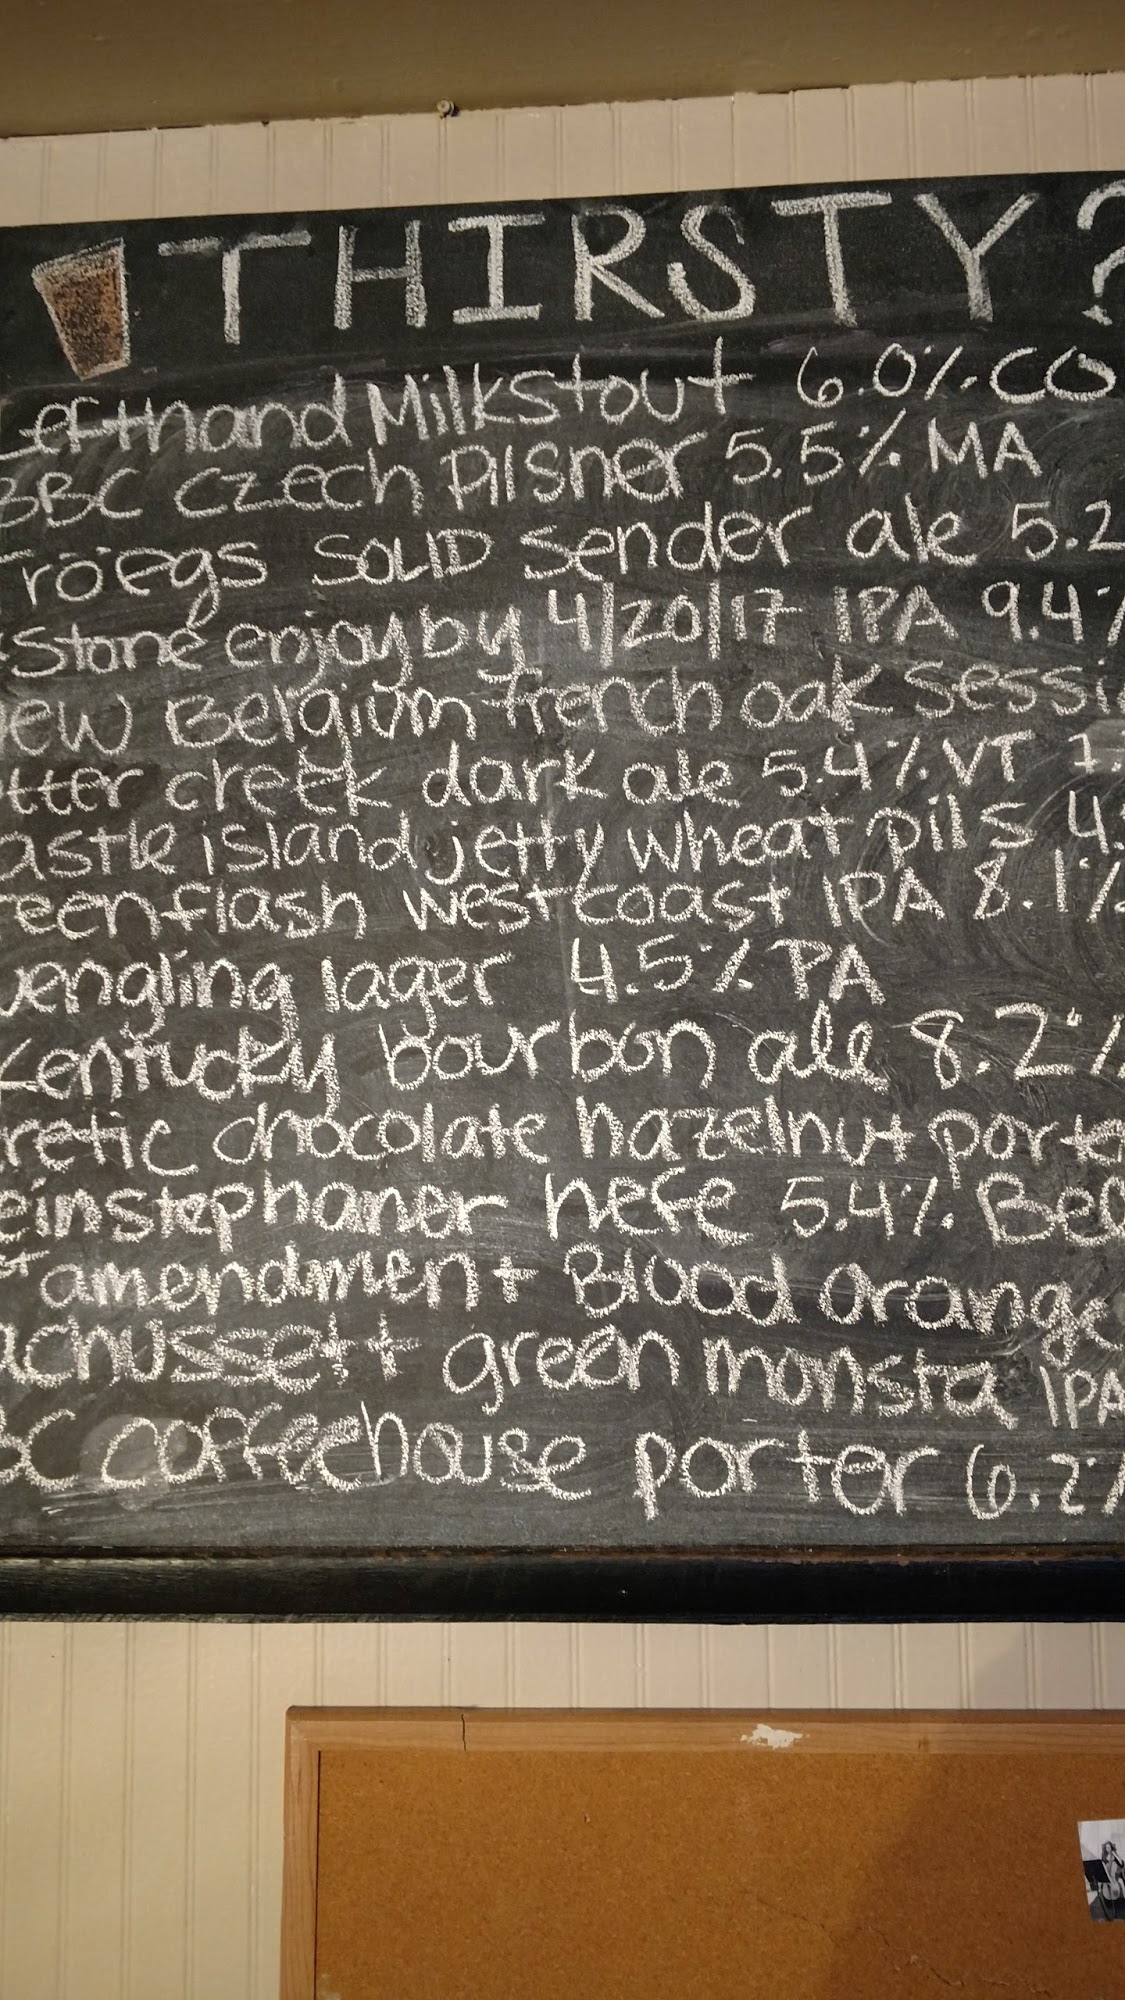 THIRSTY?
Lefthand Milkstout 6.0% CO
BBC Czech Pilsner 5.5% MA
Tröegs SOLID Sender ale 5.2
Stone enjoy by 4/20/17 IPA 9.4%
ew Belgium french oak sessi
tter creek dark ale 5.4% VT
astle island jetty wheat pils 4.
eenflash westcoast IPA 8.1%
uengling lager 4.5% PA
Kentucky bourbon ale 8.2%
retic chocolate hazelnut porte
einstephaner hefe 5.4% Bel
st amendment Blood orange
achussett green monsta IPA
BC coffeehouse porter 6.2%